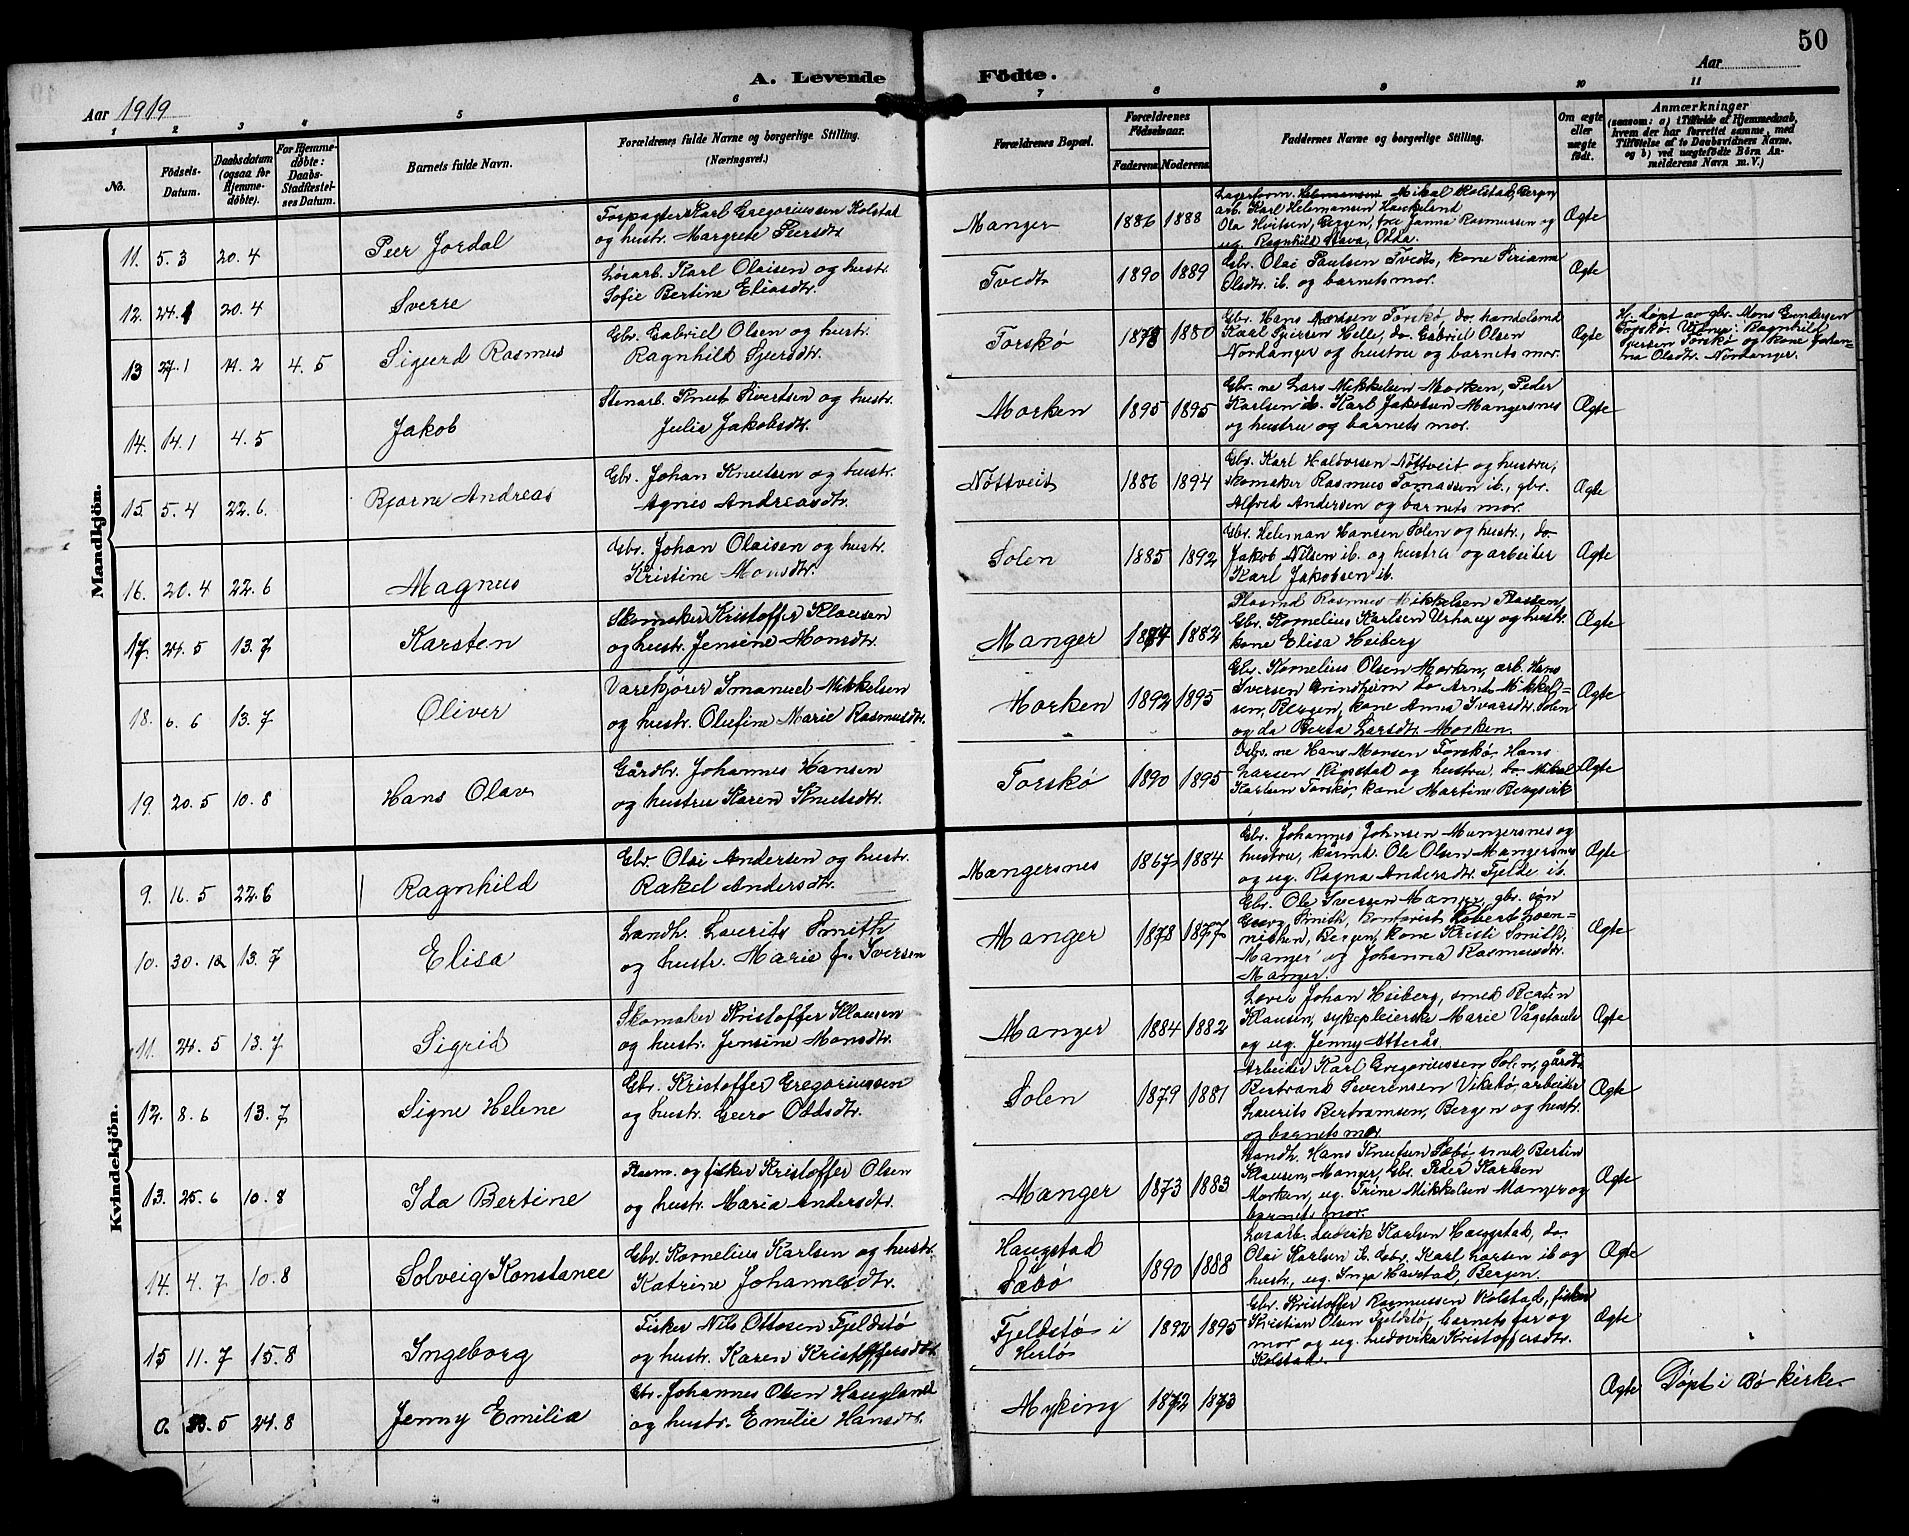 50
A. Levende Födte.
Aar 1919
Aar
1 2 3 4 5 6 7 8 9 10 11
No.
Födsels-Datum.
Daabsdatum (ogsaa for Hjemme-döbte).
For Hjemme-döbte: Daabs-Stadfæstel-ses Datum.
Barnets fulde Navn.
Forældrenes fulde Navne og borgerlige Stilling. (Næringsvei.)
Forældrenes Bopæl.
Forældrenes Födselsaar.
Faderens. Moderens.
Faddernes Navne og borgerlige Stilling.
Om ægte eller uægte födt.
Anmærkninger
(saasom: a) i Tilfælde af Hjemmedaab,
hvem der har forrettet samme, med
Tilföielse af to Daabsvidners Navne.
og b) ved uægtefödte Börn An-
melderens Navn m. V.)
Mandkjön.
11. 5.3 20.4 Peer Jordal
Forpagter Karl Gregoriussen Kolstad
og hustr. Margrete Peersdtr.
Manger 1886 1888
Mikal Kolstad, Bergen
arb. Karl Helemansen Haukeland
Ola Hvitsen, Bergen, fru Janna Rasmussen og
ug. Ragnhild Rava, Odda.
Ægte
12. 24.1 20.4 Sverre
Løsarb. Karl Olaisen og hustr.
Sofie Bertine Eliasdtr.
Tvedt 1890 1889
Gbr. Olai Paulsen Tvedt, kone Sirianna
Olsdtr. ib. og barnets mor.
Ægte
13 27.1 14.2 4.5 Sigurd Rasmus
Gbr. Gabriel Olsen og hustr.
Ragnhild Sjursdtr.
Torskø 1878 1880
Gbr. Hans Monsen Torskø, do. handelsmd
Karl Iversen Hille, do. Gabriel Olsen
Nordanger og hustru og barnets mor.
Ægte
H. døpt av gbr. Mons Gundersen
Torskø. Vitner: Ragnhild
Iversen Torskø og kone Johan-
na Olsdtr. Nordanger.
14. 14.1 4.5 Jakob
Stenarb. Knut Sivertsen og hustr.
Julie Jakobsdtr.
Morken 1895 1895
Gbr.ne Lars Mikkelsen Morken, Peder
Karlsen ib. Karl Jakobsen Mangersnes
og hustru og barnets mor.
Ægte
15. 5.4 22.6. Bjarne Andreas
Gbr. Johan Knutsen og hustr.
Agnes Andreasdtr.
Nöttveit 1886 1894
Gbr. Karl Halvorsen Nöttveit og hustru,
skomaker Rasmus Tomassen ib., gbr.
Alfred Andersen og barnets mor.
Ægte
16. 20.4 22.6 Magnus
Gbr. Johan Olaisen og hustr.
Kristine Monsdtr.
Solen 1885 1892
Gbr. Heleman Hansen Solen og hustr., do.
Jakob Nilsen ib. og hustru og arbeider
Karl Jakobsen ib.
Ægte
17. 24.5 13.7 Karsten
Skomaker Kristoffer Klausen
og hustr. Jensine Monsdtr.
Manger 1884 1882
Plasmd Rasmus Mikkelsen Plassen,
Gbr. Kornelius Karlsen Urhaug og hustr.
kone Elisa Heiberg
Ægte
18. 6.6 13.7 Oliver
Varekjører Imanuel Mikkelsen
og hustr. Olufine Marie Rasmusdtr.
Morken 1892 1895
Gbr. Kornelius Olsen Morken, arb. Hans
Iversen Grindheim do Arnt Mikkel-
sen, Bergen, kone Anna Ivarsdtr. Solen
og do Berta Larsdtr. Morken.
Ægte
19. 20.5 10.8 Hans Olav
Gårdbr. Johannes Hansen
og hustru Karen Knutsdtr.
Torskø 1890 1895
Gbr.ne Hans Monsen Torskø, Hans
Larsen Rigstad og hustru, do. Mikal
Karlsen Torskø, kone Martine Bergsvik
Ægte
Kvindekjön.
9. 16.5 22.6 Ragnhild
Gbr. Olai Andersen og hustr.
Rakel Andersdtr.
Mangersnes 1867 1884
Gbr. Johannes Johnsen Mangersnes og
hustru, kårmd. Ole Olsen Mangersnes
og ug. Ragna Andersdtr. Fjelde ib.
Ægte
10. 30.12 13.7 Elisa
Landh. Lauritz Smith
og hustr. Marie f. Iversen
Manger 1878 1877
Gbr. Ole Iversen Manger, gbr. søn
Georg Smith, kontorist Robert Loen-
nichen, Bergen, kone Kristi Smith,
Manger og Johanna Rasmusdtr.
Manger.
Ægte
11. 24.5 13.7 Sigrid
Skomaker Kristoffer Klausen
og hustr. Jensine Monsdtr.
Manger 1884 1882
Johan Heiberg, smed Bertin
Klausen, sykepleierske Marie Vågstøl
og ug. Jenny Atterås
Ægte
12. 8.6 13.7 Signe Helene
Gbr. Kristoffer Gregoriussen
og hustr. Guro Oddsdtr.
Solen 1879 1881
Arbeider Karl Gregoriussen Solen, gårdb
Bertrand Severensen Vikebø, arbeider
Laurits Bertramsen, Bergen og hustr.
og barnets mor.
Ægte
13. 25.6 10.8 Ida Bertine
Plasm. og fisker Kristoffer Olsen
og hustr. Maria Andersdtr.
Manger 1873 1883
Landh. Hans Knutsen Sæbø, smed Bertin
Klausen, Manger, Gbr. Peder Karlsen
Morken, ug. Trine Mikkelsen Manger og
barnets mor.
Ægte
14. 4.7 10.8 Solveig Konstance
Gbr. Kornelius Karlsen og hustr.
Katrine Johannesdtr.
Haugstad
Sæbø 1890 1888
Løsarb. Ludvik Karlsen Haugstad, do.
Olai Karlsen ib. Gbr. Karl Larsen ib og
hustr., ug. Inga Havstad, Bergen.
Ægte
15 11.7 15.8 Ingeborg
Fisker Nils Ottosen Fjeldstø
og hustr. Karen Kristoffersdtr.
Fjeldstø i
Herlø 1892 1895
Gbr. Kristoffer Rasmussen Kolstad, fisker
Kristian Olsen Fjeldstø, barnets far og
mor og ug. Ludovika Kristoffersdtr.
Kolstad.
Ægte
0. 23.5 24.8 Jenny Emilia
Gbr. Johannes Olsen Haugland
og hustr. Emilie Hansdtr.
Myking 1872 1873
Ægte Døpt i Bø kirke